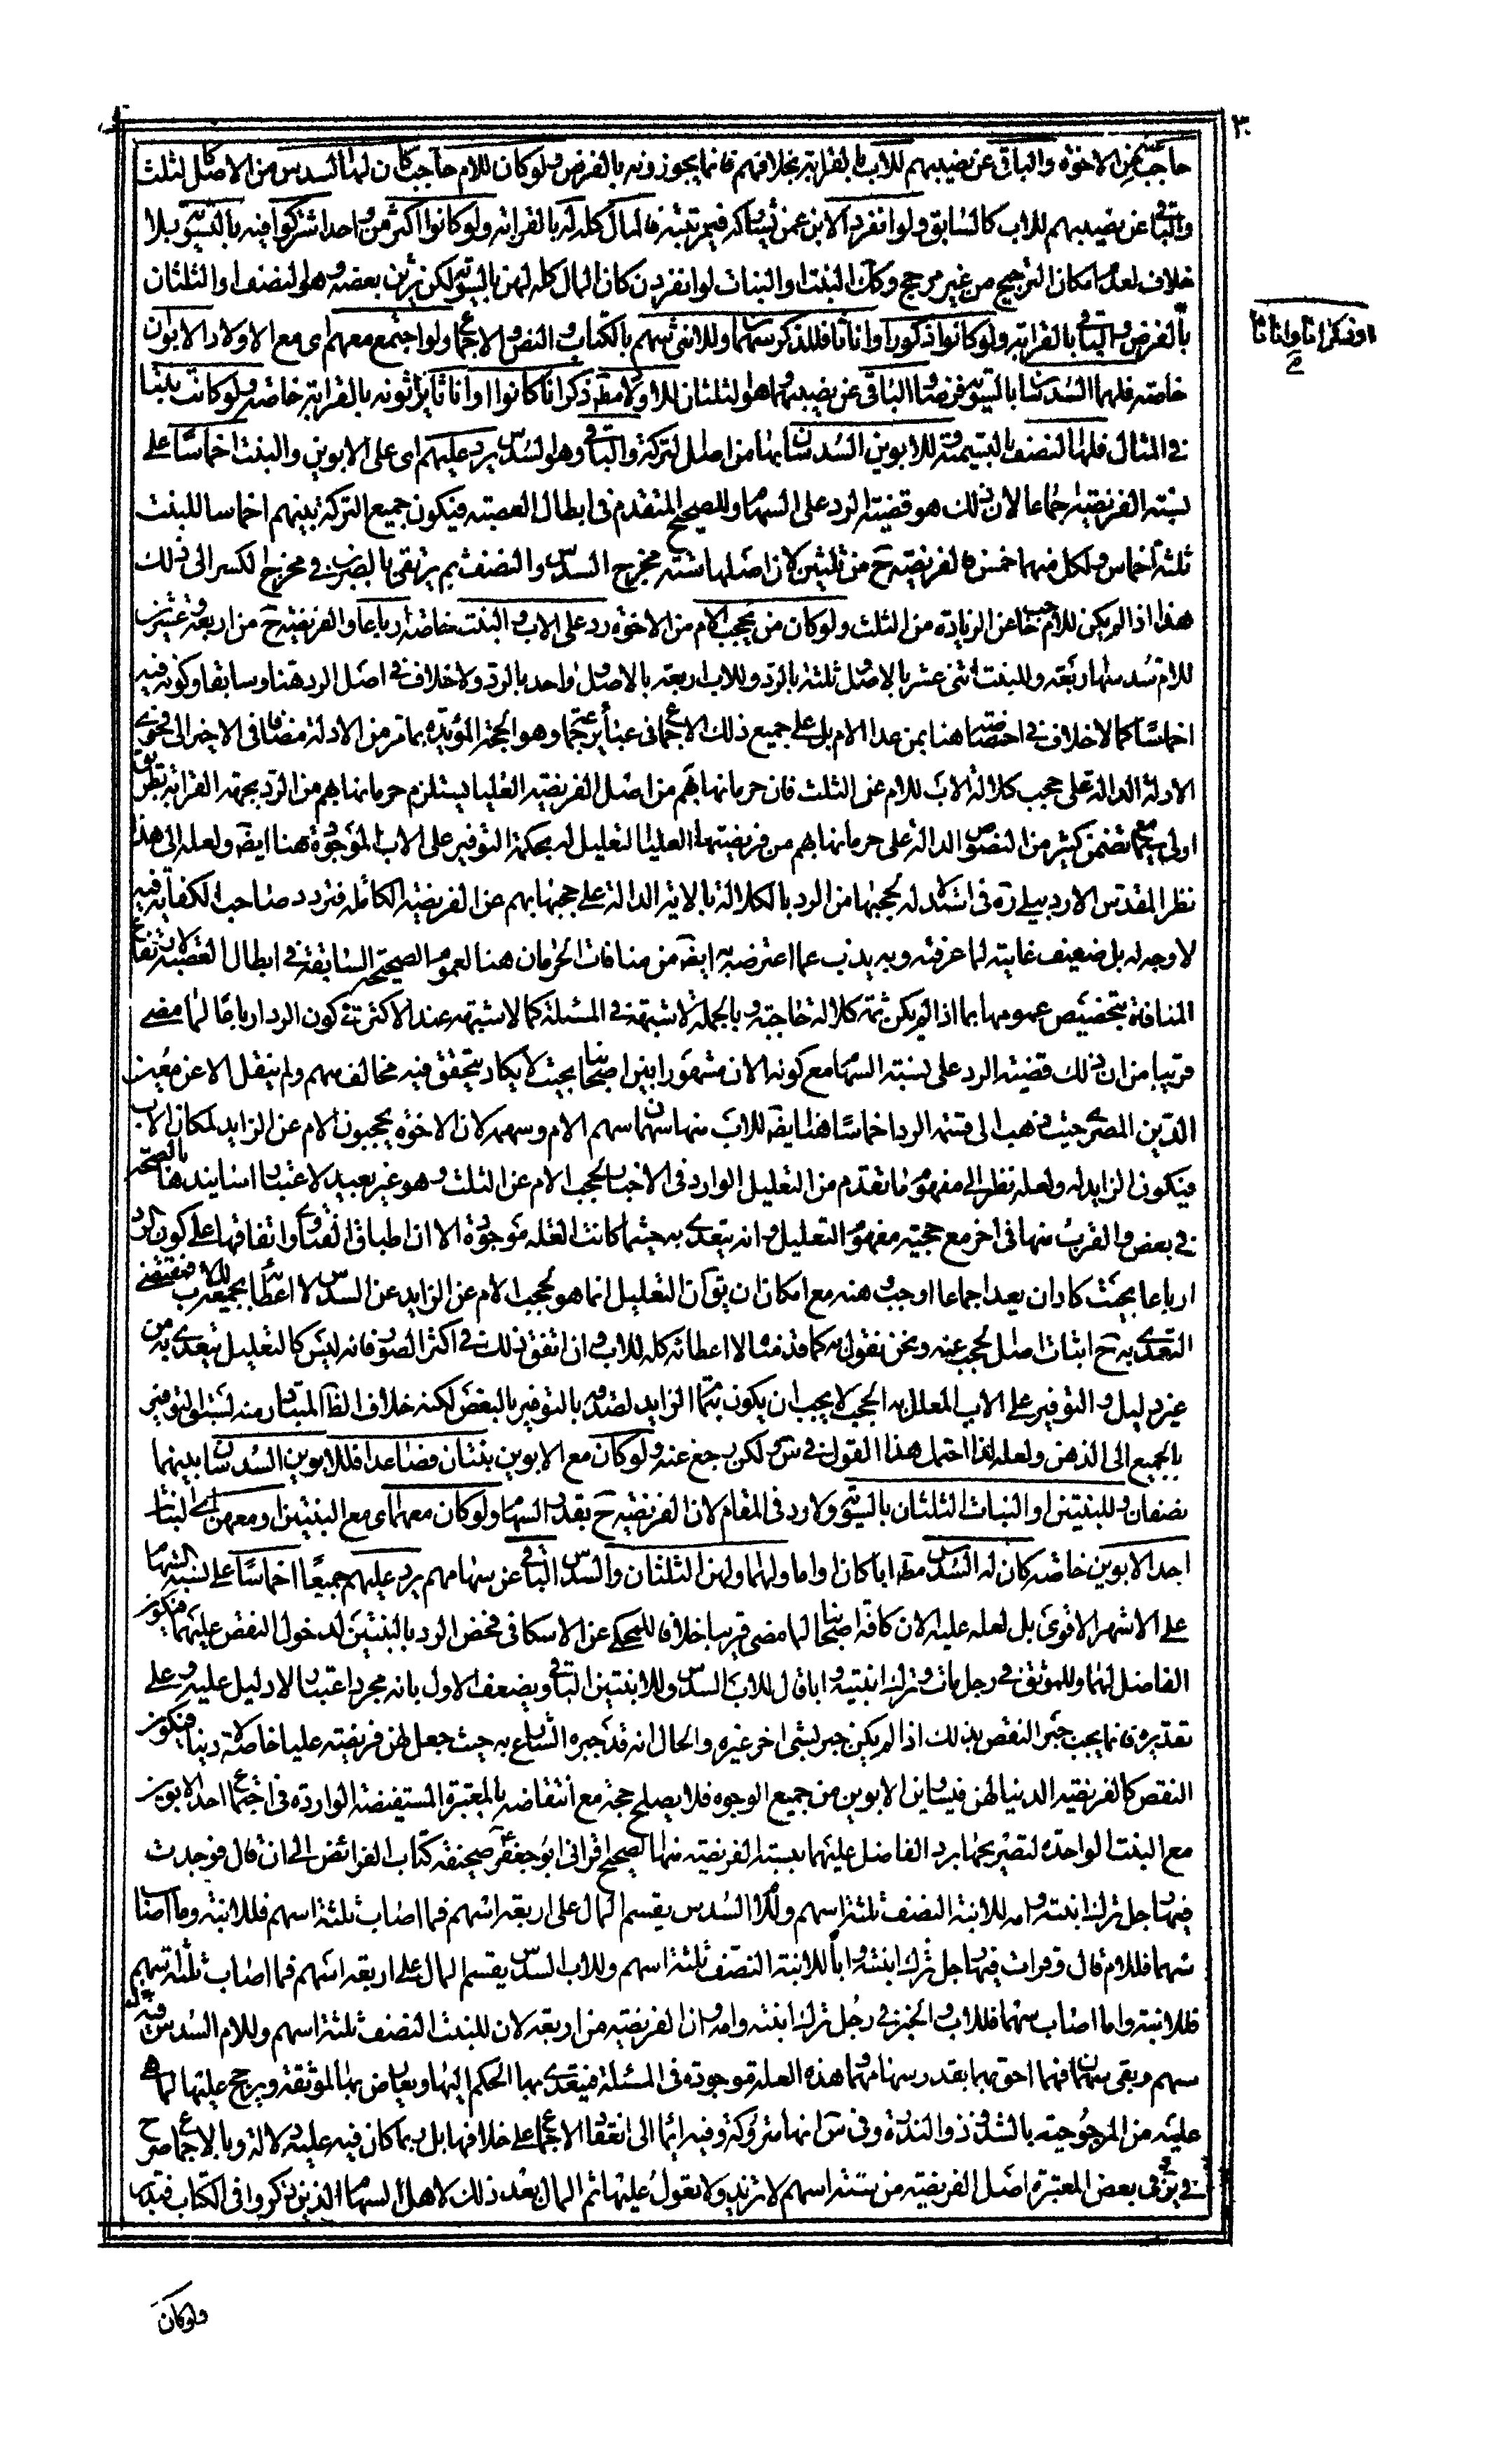 ٣٠
حاجب من الاخوة والباقى عن نصيبهم للاب بالقرابة بخلافهم فانما يجوزونه بالفرض ولو كان للام حاجب كان لها السدس من الاصل لا الثلث
والباقى عن نصيبهم للاب كالسابق ولو انفرد الابن عمن يشاركه فى مرتبته فالمال كله له بالقرابة ولو كانوا اكثر من واحد اشتركوا فيه بالتسوية بلا
خلاف لعدم امكان الترجيح من غير مرجح وكك البنت او البنات لو انفردن كان المال كله لهن بالتسوية لكن يرثن بعضه وهو النصف او الثلثان
بالفرض والباقى بالقرابة ولو كانوا ذكورا واناثا فللذكر سهمان وللانثى سهم بالكتاب والنص والاجماع ولو اجتمع معهم اى مع الاولاد الابوان
او ذكرانا واناثا
خاصة فلهما السدسان بالتسوية فرضا والباقى عن نصيبهما وهو الثلثان للاولاد مطلقا ذكرانا كانوا او اناثا يرثونه بالقرابة خاصة ولو كانت بنتا
فى المثال فلها النصف بالتسمية وللابوين السدسان بها من اصل التركة والباقى وهو السدس يرد عليهم اى على الابوين والبنت اخماسا على
نسبة الفريضة اجماعا لان ذلك هو قضية الرد على السهام وللصحيح المتقدم فى ابطال العصبة فيكون جميع التركة بينهم اخماسا للبنت
ثلثة اخماس ولكل منهما خمس فالفريضة ح من ثلثين لان اصلها ستة مخرج السدس والنصف ثم يرتقى بالضرب فى مخرج الكسر الى ذلك
هذا اذا لم يكن للام حاجب عن الزيادة من الثلث ولو كان من يحجب الام من الاخوة رد على الاب والبنت خاصة ارباعا والفريضة ح من اربعة وعشرين
للام سدسها اربعة وللبنت اثنى عشر بالاصل وثلثة بالرد وللاب اربعة بالاصل وواحد بالرد ولا خلاف فى اصل الرد هنا وسابقا وكونه فيه
اخماسا كما لا خلاف فى اختصاصه هنا بمن عدا الام بل على جميع ذلك الاجماع فى عبائر جماعة وهو الحجة المؤيدة بما مر من الادلة مضافا فى الاخير الى فحوى
الادلة الدالة على حجب كلالة الاب للام عن الثلث فان حرمانها بهم من اصل الفريضة العليا يستلزم حرمانها بهم من الرد بجهة القرابة بطريق
اولى مع تضمن كثير من النصوص الدالة على حرمانها بهم من فريضتها العليا التعليل له بحكمة التوفير على الاب الموجودة هنا ايضا ولعله الى هذا
نظر المقدس الاردبيلى ره فى استدلاله لحجبها من الرد بالكلالة بالاية الدالة على حجبها بهم عن الفريضة الكاملة فتردد صاحب الكفاية فيه
لا وجه له بل ضعيف غايته لما عرفته وبه يذب عما اعترضه به ايضا من منافات الحرمان هنا لعموم الصحيح السابقة فى ابطال العصبة لارتفاع
المنافاة بتخصيص عمومها بما اذا لم يكن ثمة كلالة حاجبة وبالجملة لا شبهة فى المسئلة كما لا شبهة عند الاكثر فى كون الرد ارباعا لما مضى
قريبا من ان ذلك قضية الرد على نسبة السهام مع كونه الان مشهورا بين اصحابنا بحيث لا يكاد يتحقق فيه مخالف منهم ولم ينقل الا عن معين
الدين المصرى حيث ذهب الى قسمة الرد اخماسا هنا ايضا للاب منها سهمان سهم الام وسهمه لان الاخوة يحجبون الام عن الزايد لمكان الاب
فيكون الزايد له ولعله نظر الى مفهوم ما تقدم من التعليل الوارد فى الاخبار لحجب الام عن الثلث وهو غير بعيد لاعتبار اسانيدها بالصحة
فى بعض والقرب منها فى اخر مع حجية مفهوم التعليل وانه يتعدى به حيثما كانت العلة موجودة الا ان اطباق الفتاوى واتفاقها على كون الرد
ارباعا بحيث كاد ان يعد اجماعا اوجب وهنه مع امكان ان يقال ان التعليل انما هو لحجب الام عن الزايد عن السدس لا اعطائه بجميعه للاب فمقتضى
التعدى به ح اثبات اصل الحجب عنه ونحن نقول به كما قدمنا لا اعطائه كله للاب وان اتفق ذلك فى اكثر الصور فانه ليس كالتعليل يتعدى به من
غير دليل والتوفير على الاب المعلل به الحجب لا يجب ان يكون بتمام الزايد لصدق التوفير بالبعض لكنه خلاف الظاهر المتبادر منه لسبق التوفير
بالجميع الى الذهن ولعله لذا احتمل هذا القول فى س لكن رجع عنه ولو كان مع الابوين بنتان فصاعدا فللابوين السدسان بينهما
نصفان وللبنتين او البنات الثلثان بالتسوية ولا رد فى المقام لان الفريضة ح بقدر السهام ولو كان معهما اى مع البنتين او معهن اى البنات
احد الابوين خاصة كان له السدس مطلقا ابا كان او اما ولهما ولهن الثلثان والسدس الباقى عن سهامهم يرد عليهم جميعا اخماسا على نسبة السهام
على الاشهر الاقوى بل لعله عليه الان كافة اصحابنا لما مضى قريبا خلافا للمحكى عن الاسكافى فخص الرد بالبنتين لدخول النقص عليهما فيكون
الفاضل لهما وللموثق فى رجل مات وترك ابنتيه واباه قال للاب السدس وللابنتين الباقى ويضعف الاول بانه مجرد اعتبار لا دليل عليه وعلى
تقديره فانما يجب جبر النقص بذلك اذا لم يكن جبر بشئ اخر غيره والحال انه قد جبره الشارع به حيث جعل لهن فريضة عليا خاصة لا دنيا فيكون
النقص كالفريضة الدنيا لهن فيساوين الابوين من جميع الوجوه فلا يصلح حجة مع انتقاضه بالمعتبرة المستفيضة الواردة فى اجتماع احد الابوين
مع البنت الواحدة لتصريحها برد الفاضل عليهما بنسبة الفريضة منها الصحيح اقرانى ابو جعفر ع صحيفة كتاب الفرائض الى ان قال فوجدت
فيها رجل ترك ابنته وامه للابنة النصف ثلثة اسهم وللام السدس يقسم المال على اربعة اسهم فما اصاب ثلثة اسهم فللابنة وما اصاب
سهما فللام قال وقرات فيها رجل ترك ابنته واباه للابنة النصف ثلثة اسهم وللاب السدس يقسم المال على اربعة اسهم فما اصاب ثلثة اسهم
فللابنة واما اصاب سهما فللاب والخبر فى رجل ترك ابنته وامه ان الفريضة من اربعة لان للبنت النصف ثلثة اسهم وللام السدس
سهم وبقى سهمان فهما احق بهما بقدر سهامهما وهذه العلة موجودة فى المسئلة فيتعدى بها الحكم اليها ويعارض بها الموثقة ويرجح عليها لما هى
عليه من المرجوحية بالشذوذ والندرة وفى س انها متروكة وفيه ايماء الى انعقاد الاجماع على خلافها بل ربما كان فيه عليه دلالة وبالاجماع صرح
فى بعض المعتبرة اصل الفريضة من ستة اسهم لا تزيد ولا تعول عليها ثم المال بعد ذلك لاهل السهام الذين ذكروا فى الكتاب فتدبر
ولو كان